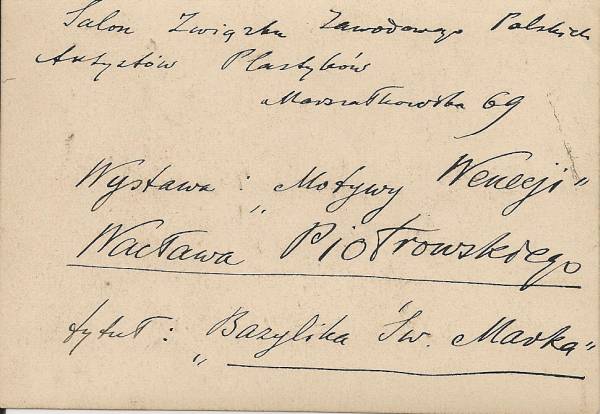 Salon Związku Zawodowego Polskich
Artystów Plastyków
Marszałkowska 69
Wystawa: „Motywy Wenecji"
Wacława Piotrowskiego
tytuł: „Bazylika Św. Marka"